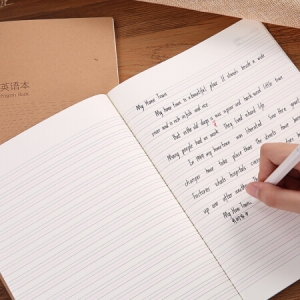 英语本
English Book
My Home Town
My home town is a beautiful place. It stands beside a wide
river and is rich in fish and rice.
But in the old days it was a poor and back ward little town.
Many people had no work. They lived hard life.
In 1949 my hometown was liberated. Since then great
changes have taken place there. The streets have been
factories schools hospitals cinemas
up one after another. The
My Home Town.